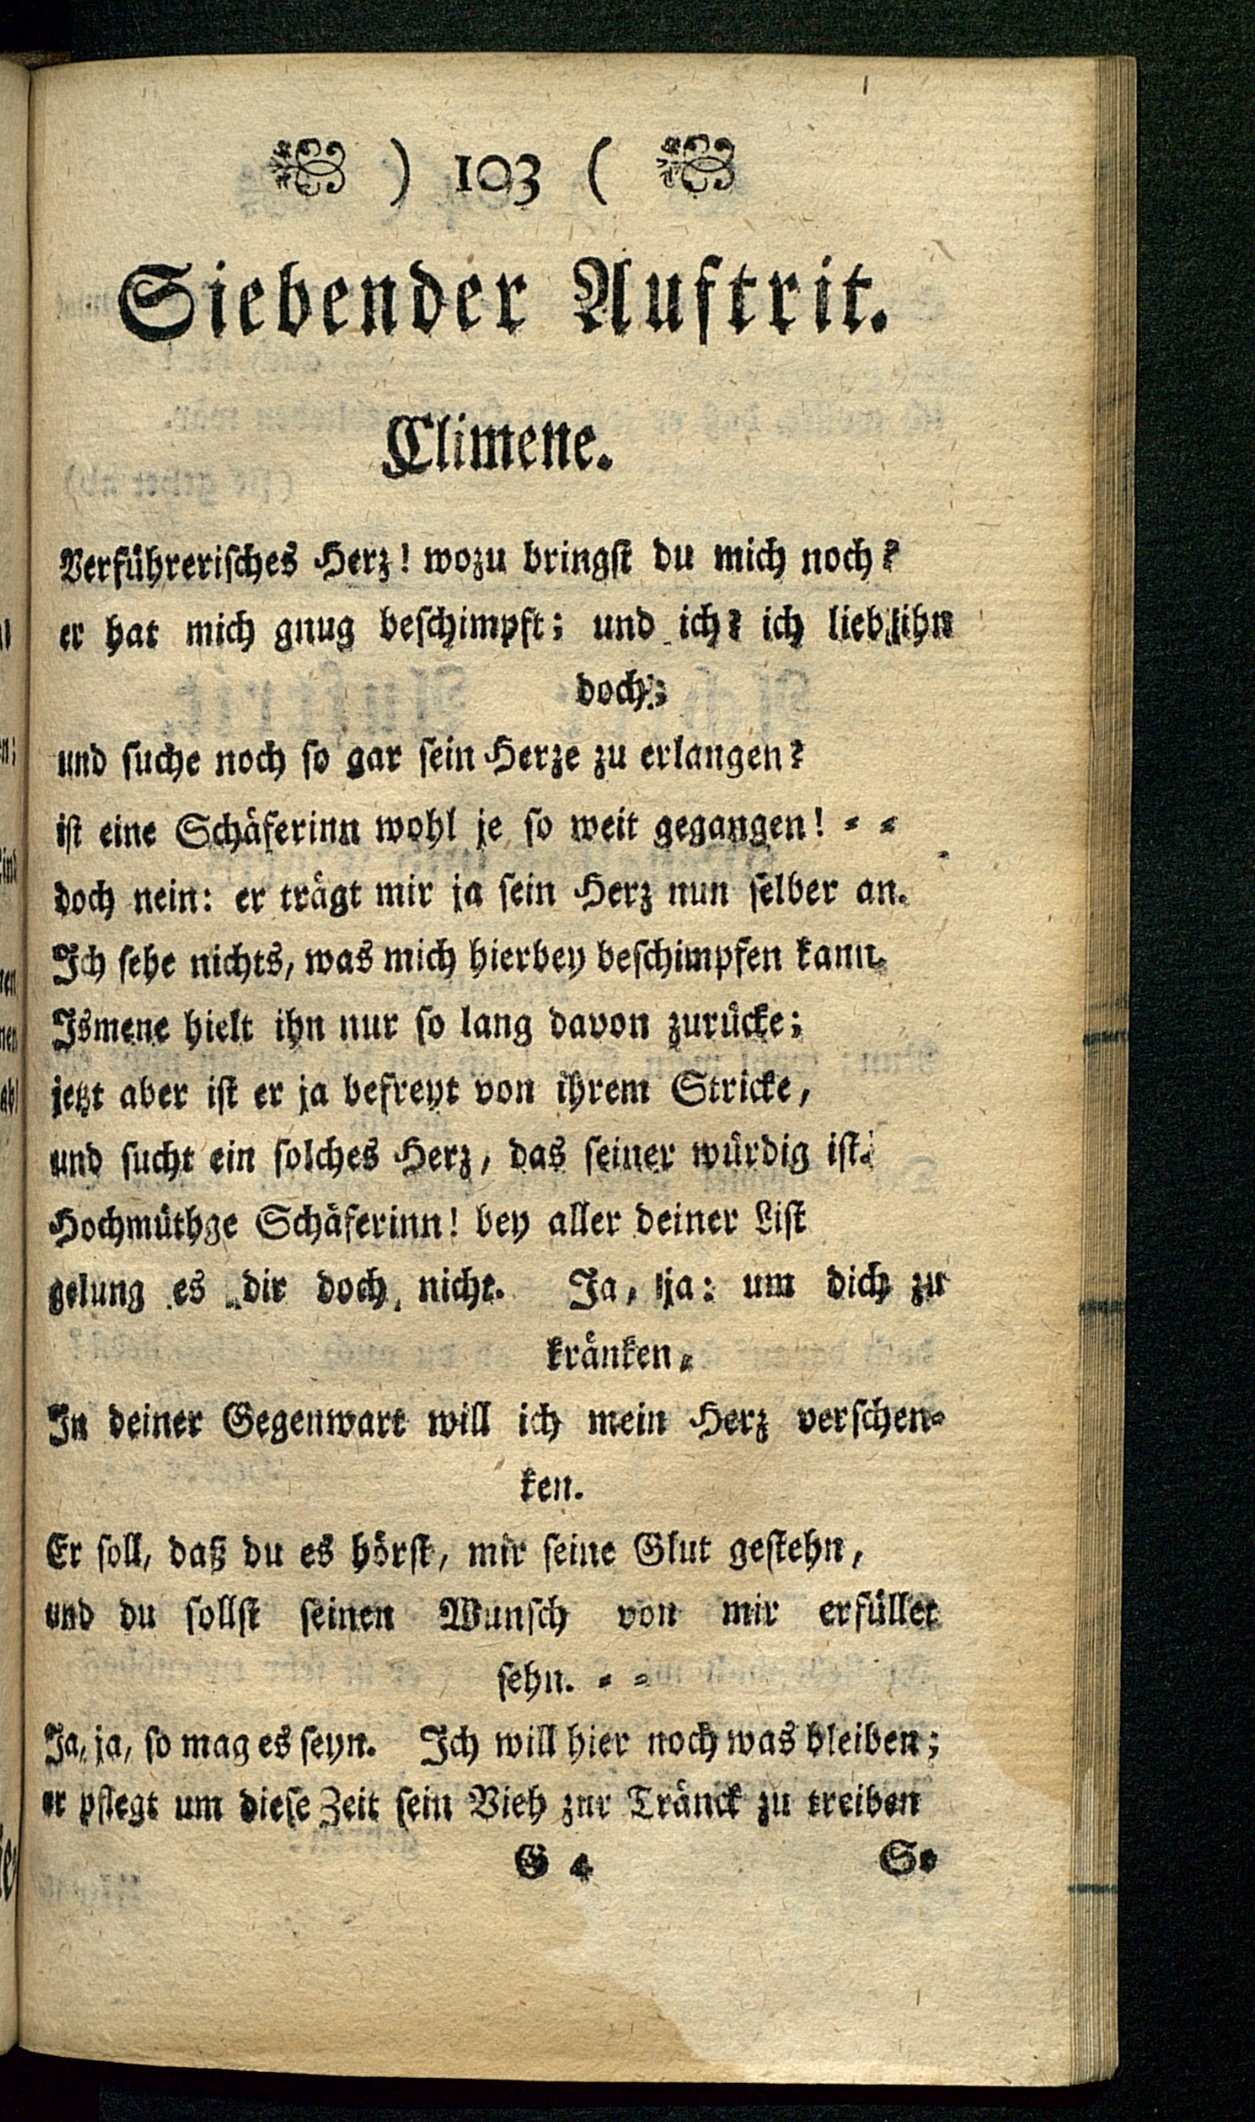 ) 103 (
Siebender Auftrit.
Climene.
Verführerisches Herz! wozu bringst du mich noch?
er hat mich gnug beschimpft; und ich? ich lieb ihn
doch;
und suche noch so gar sein Herze zu erlangen?
ist eine Schäferinn wohl je so weit gegangen! = =
doch nein: er trägt mir ja sein Herz nun selber an.
Ich sehe nichts, was mich hierbey beschimpfen kann.
Ismene hielt ihn nur so lang davon zurücke;
jetzt aber ist er ja befreyt von ihrem Stricke,
und sucht ein solches Herz, das seiner würdig ist.
Hochmüthge Schäferinn! bey aller deiner List
gelung es dir doch nicht. Ja, ja: um dich zu
kränken,
In deiner Gegenwart will ich mein Herz verschen=
ken.
Er soll, daß du es hörst, mir seine Glut gestehn,
und du sollst seinen Wunsch von mir erfüllet
sehn. = =
Ja, ja, so mag es seyn. Ich will hier noch was bleiben;
er pflegt um diese Zeit sein Vieh zur Tränck zu treiben
G 4 So